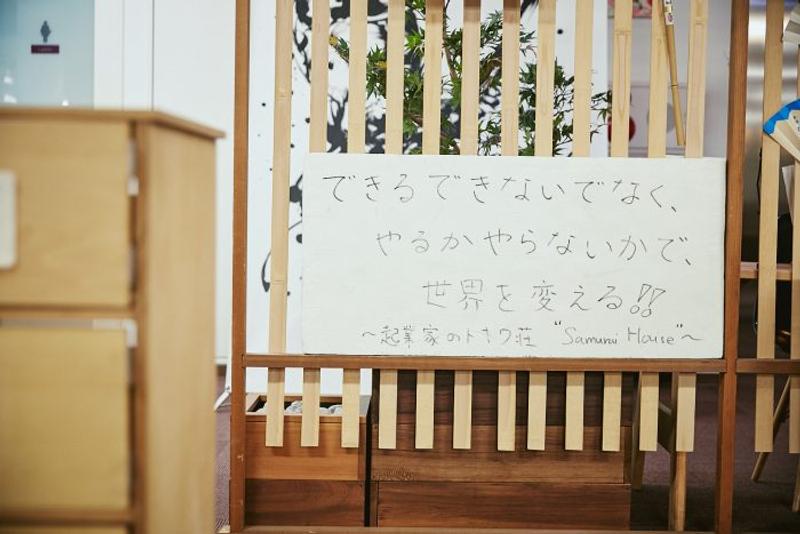 できるできないでなく、
やるかやらないかで、
世界を変える!!
～起業家のトキワ荘 "Samurai House"～